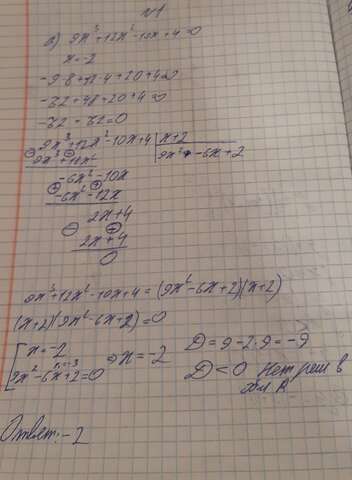 №1
а) 9x³+12x²-10x+4=0
x=-2
-9·8+12·4+20+4=0
-72+48+20+4=0
-72-72=0
9x³+12x²-10x+4 | x+2
9x³+18x² | 9x²-6x+2
-6x²-10x
-6x²-12x
2x+4
2x+4
0
9x³+12x²-10x+4=(9x²-6x+2)(x+2)
(x+2)(9x²-6x+2)=0
x=-2 ⇒x=-2 D=9-2·9=-9
9x²-6x+2=0 k=-3 D<0 Нет реш в
R
Ответ: -2